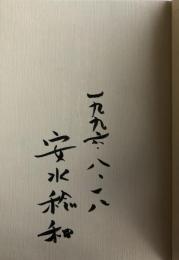 一九九六・八・一八
安水稔和